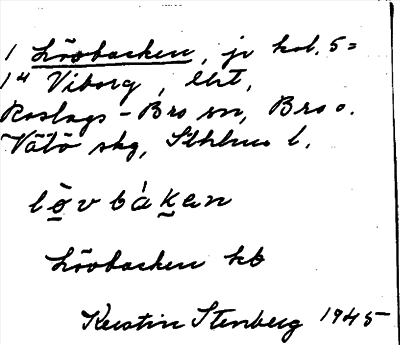 1 Lövbacken, jr kol. 5=
14 Viborg, lht,
Roslags-Bro sn, Bro o.
Vätö skg, Sthlms l.
lö̱v bàḵen
Lövbacken kb
Kerstin Stenberg 1945